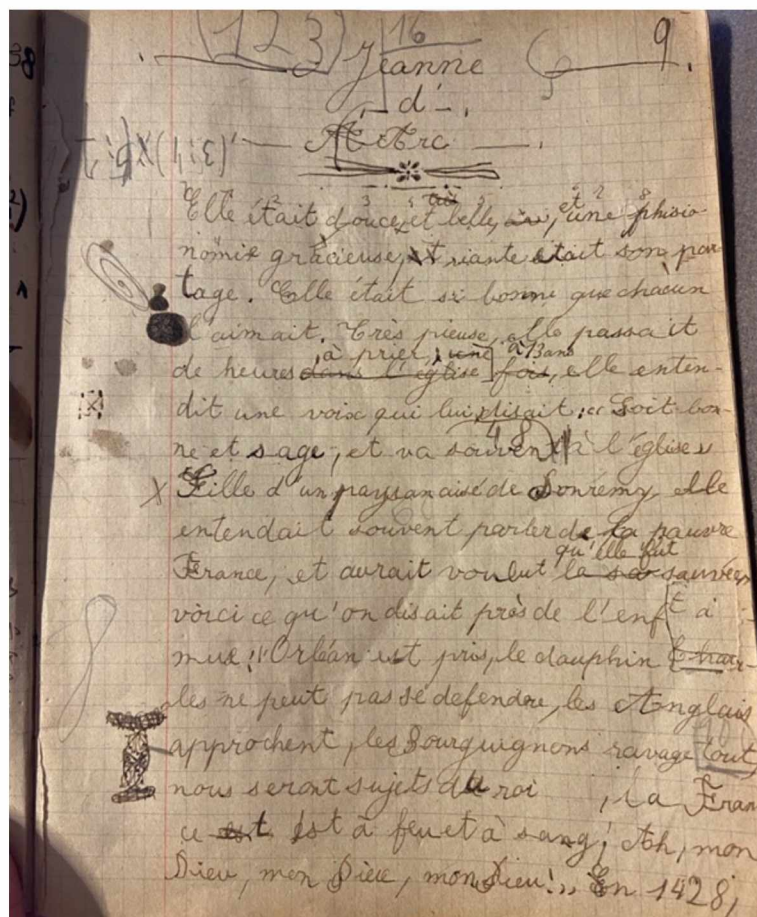 (123) 16 9.
Jeanne
d'
Arc
(3:4)X5:7
Elle était douce et belle, et, une phisio-
nomie gràcieuse, riante était son par-
tage. Elle était si bonne que chàcun
l'aimait. Très pieuse, elle passait
à prier, une à 13 ans
de heures dans l'église fois, elle enten-
dit une voix qui lui disait : « Soit bon-
48
ne et sage, et va souvent à l'église »
X Fille d'un paysan aisé de Donremy, elle
entendait souvent parler de la pauvre
qu'elle fut
France, et aurait voulut la sauvée
voici ce qu'on disait près de l'enf t à
mux "Orléan est pris, le dauphin Char-
les ne peut pas se défendre, les Anglais
approchent, les Bourguignons ravage tout,
nous seront sujets du roi , la Fran
ce est est à feu et à sang ; Ah, mon
Dieu, mon Dieu, mon Dieu! ,, En 1428,